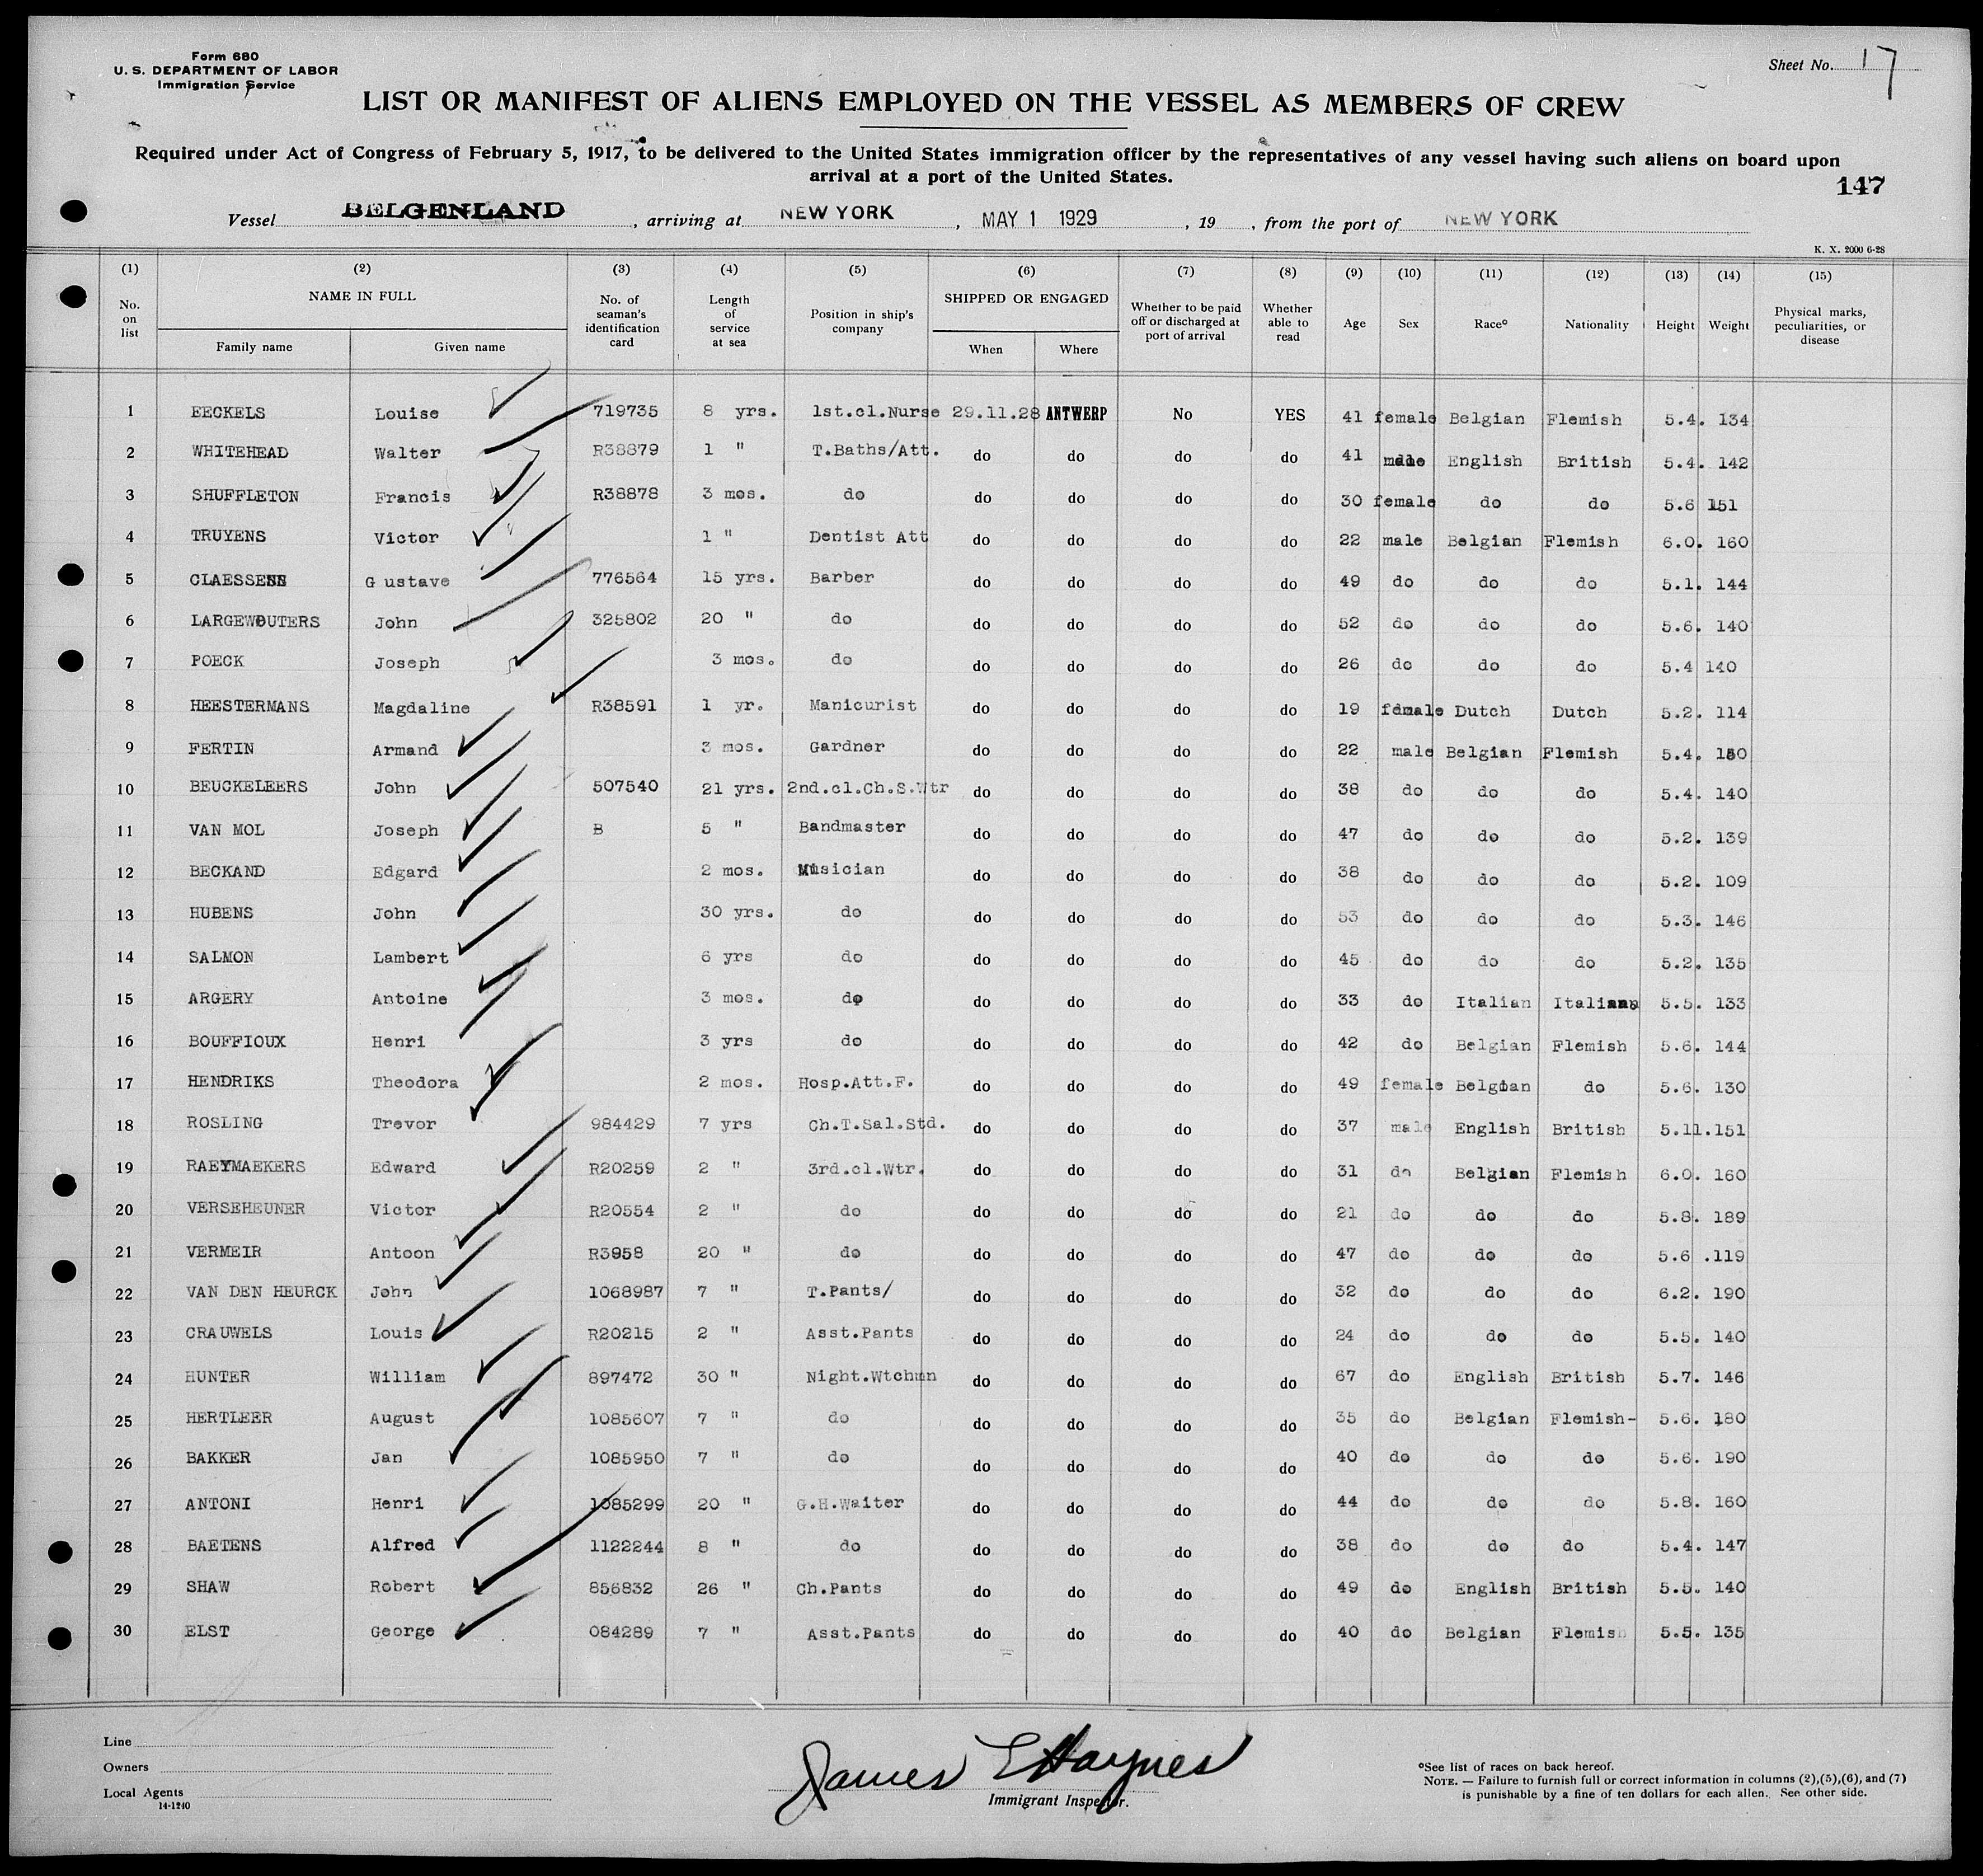 Form 680
U. S. DEPARTMENT OF LABOR
Immigration Service
Sheet No. 17
LIST OR MANIFEST OF ALIENS EMPLOYED ON THE VESSEL AS MEMBERS OF CREW
Required under Act of Congress of February 5, 1917, to be delivered to the United States immigration officer by the representatives of any vessel having such aliens on board upon
arrival at a port of the United States.
147
Vessel BELGENLAND, arriving at NEW YORK, MAY 1 1929, 19 , from the port of NEW YORK
K. X. 2000 6-28
(1) (2) (3) (4) (5) (6) (7) (8) (9) (10) (11) (12) (13) (14) (15)
No. on list NAME IN FULL Family name Given name No. of seaman's identification card Length of service at sea Position in ship's company SHIPPED OR ENGAGED When Where Whether to be paid off or discharged at port of arrival Whether able to read Age Sex Race° Nationality Height Weight Physical marks, peculiarities, or disease
1 EECKELS Louise 719735 8 yrs. 1st.cl.Nurse 29.11.28 ANTWERP No YES 41 female Belgian Flemish 5.4. 134
2 WHITEHEAD Walter R38879 1 " T.Baths/Att. do do do do 41 male English British 5.4. 142
3 SHUFFLETON Francis R38878 3 mos. do do do do do 30 female do do 5.6 151
4 TRUYENS Victor 1 " Dentist Att do do do do 22 male Belgian Flemish 6.0. 160
5 CLAESSENS Gustave 776564 15 yrs. Barber do do do do 49 do do do 5.1. 144
6 LARGEWOUTERS John 325802 20 " do do do do do 52 do do do 5.6. 140
7 POECK Joseph 3 mos. do do do do do 26 do do do 5.4 140
8 HEESTERMANS Magdaline R38591 1 yr. Manicurist do do do do 19 female Dutch Dutch 5.2. 114
9 FERTIN Armand 3 mos. Gardner do do do do 22 male Belgian Flemish 5.4. 150
10 BEUCKELEERS John 507540 21 yrs. 2nd.cl.Ch.S.Wtr do do do do 38 do do do 5.4. 140
11 VAN MOL Joseph B 5 " Bandmaster do do do do 47 do do do 5.2. 139
12 BECKAND Edgard 2 mos. Musician do do do do 38 do do do 5.2. 109
13 HUBENS John 30 yrs. do do do do do 53 do do do 5.3. 146
14 SALMON Lambert 6 yrs do do do do do 45 do do do 5.2. 135
15 ARGERY Antoine 3 mos. do do do do do 33 do Italian Italian 5.5. 133
16 BOUFFIOUX Henri 3 yrs do do do do do 42 do Belgian Flemish 5.6. 144
17 HENDRIKS Theodora 2 mos. Hosp.Att.F. do do do do 49 female Belgian do 5.6. 130
18 ROSLING Trevor 984429 7 yrs Ch.T.Sal.Std. do do do do 37 male English British 5.11.151
19 RAEYMAEKERS Edward R20259 2 " 3rd.cl.Wtr. do do do do 31 do Belgian Flemish 6.0. 160
20 VERSEHEUNER Victor R20554 2 " do do do do do 21 do do do 5.8. 189
21 VERMEIR Antoon R3958 20 " do do do do do 47 do do do 5.6 .119
22 VAN DEN HEURCK John 1068987 7 " T.Pants/ do do do do 32 do do do 6.2. 190
23 CRAUWELS Louis R20215 2 " Asst.Pants do do do do 24 do do do 5.5. 140
24 HUNTER William 897472 30 " Night.Wtchmn do do do do 67 do English British 5.7. 146
25 HERTLEER August 1085607 7 " do do do do do 35 do Belgian Flemish- 5.6. 180
26 BAKKER Jan 1085950 7 " do do do do do 40 do do do 5.6. 190
27 ANTONI Henri 1085299 20 " G.H.Waiter do do do do 44 do do do 5.8. 160
28 BAETENS Alfred 1122244 8 " do do do do do 38 do do do 5.4. 147
29 SHAW Robert 856832 26 " Ch.Pants do do do do 49 do English British 5.5. 140
30 ELST George 084289 7 " Asst.Pants do do do do 40 do Belgian Flemish 5.5. 135
Line
Owners
Local Agents
14-1240
James E Haynes
Immigrant Inspector.
°See list of races on back hereof.
NOTE. — Failure to furnish full or correct information in columns (2),(5),(6), and (7)
is punishable by a fine of ten dollars for each alien. See other side.